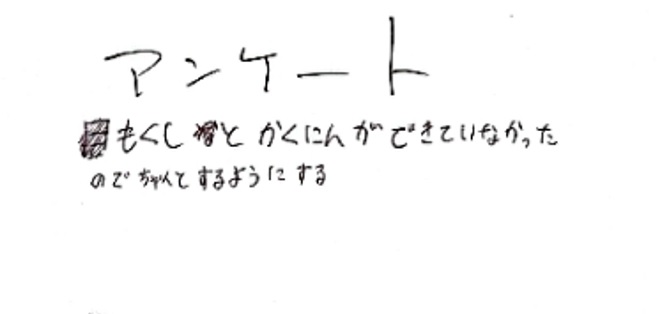 アンケート
もくしとかくにんができていなかった
のでちゃんとするようにする